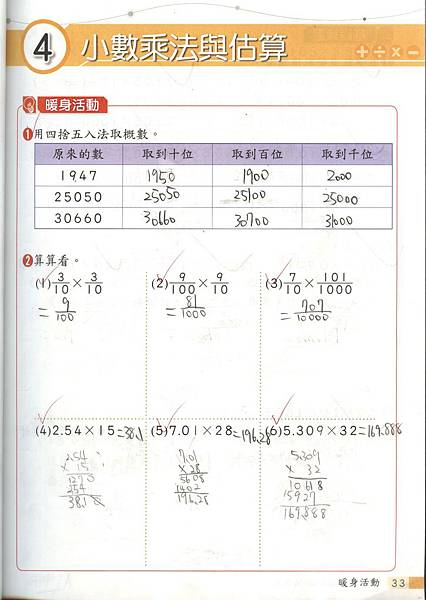 4 小數乘法與估算
+ ÷ × −
暖身活動
1 用四捨五入法取概數。
原來的數 取到十位 取到百位 取到千位
1947 1950 1900 2000
25050 25050 25100 25000
30660 30660 30700 31000
2 算算看。
(1) 3/10 × 3/10 (2) 9/100 × 9/10 (3) 7/10 × 101/1000
= 9/100 = 81/1000 = 707/10000
(4) 2.54×15=38.1 (5) 7.01×28=196.28 (6) 5.309×32=169.888
2.54 7.01 5.309
× 15 × 28 × 32
1270 5608 10618
254 1402 15927
38.10 196.28 169.888
暖身活動 33